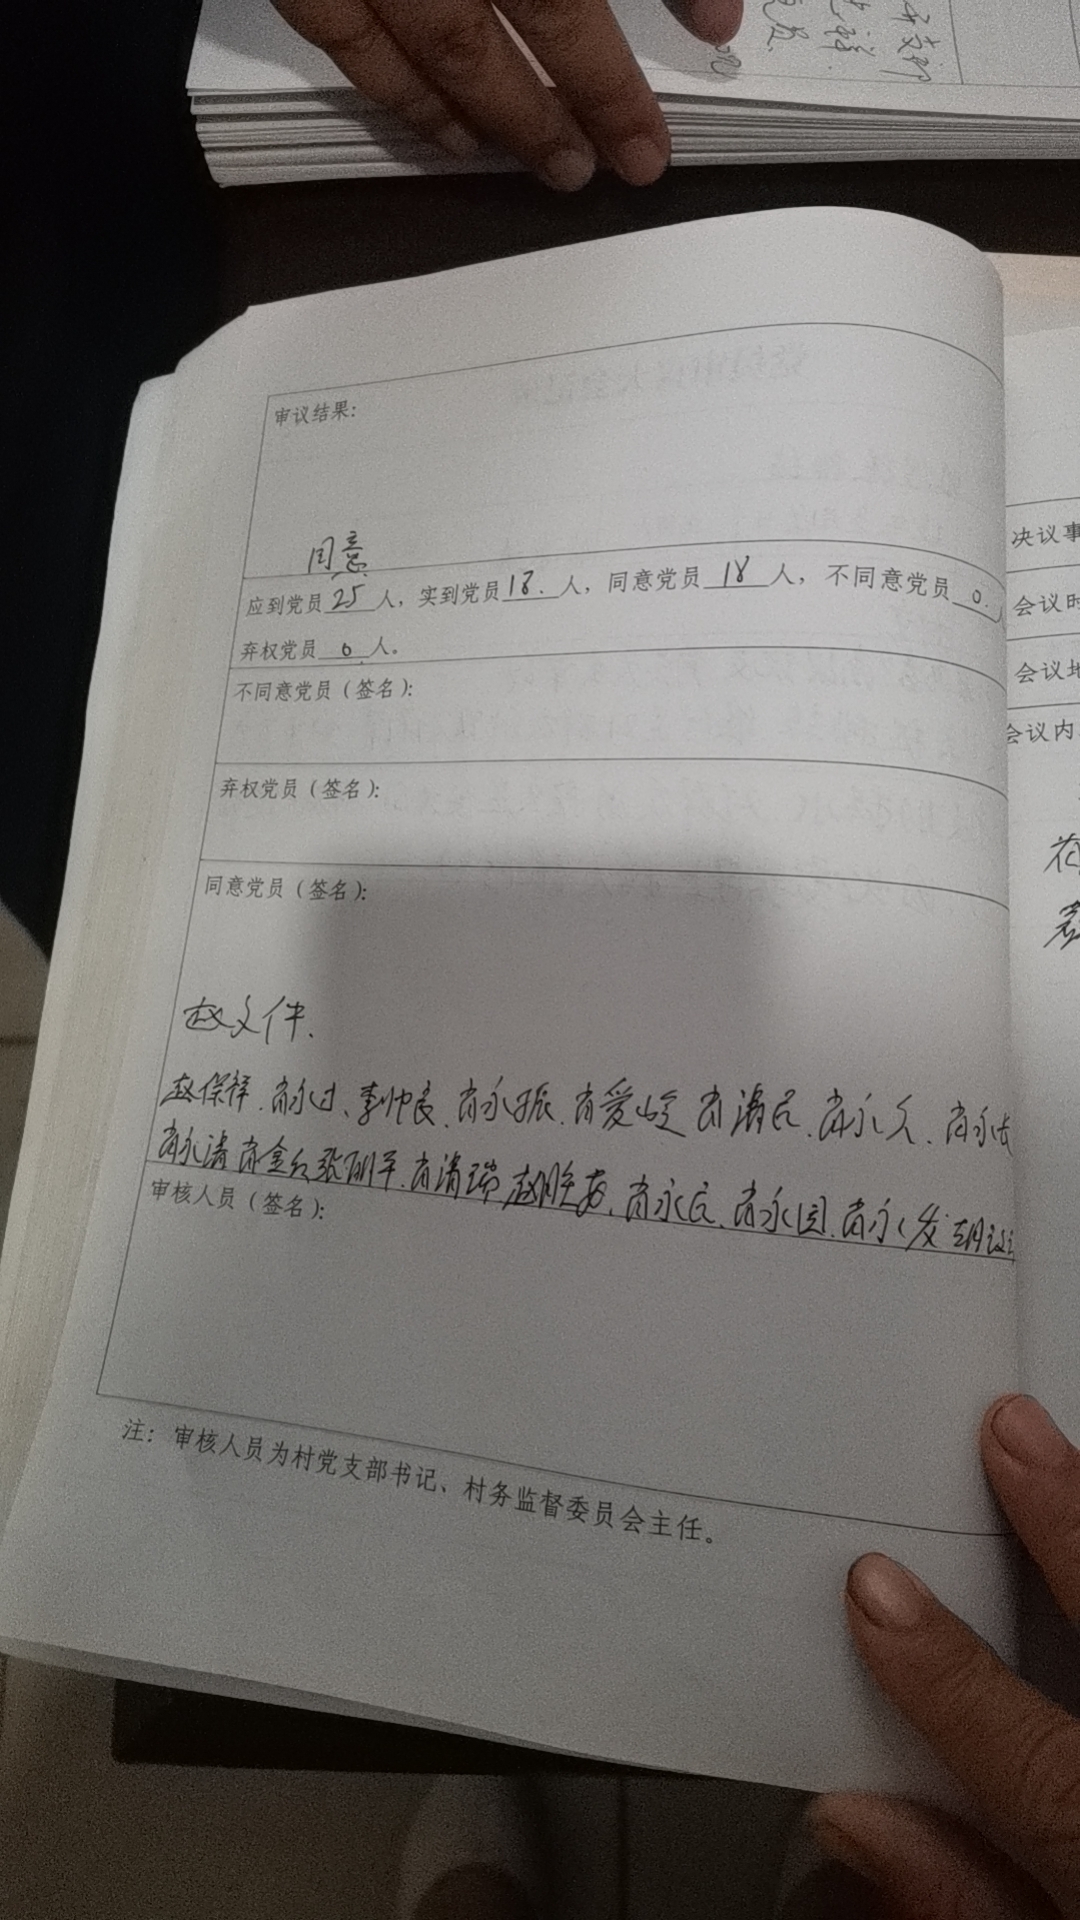 审议结果：
同意
应到党员25人，实到党员18.人，同意党员18人，不同意党员0.
弃权党员0人。
不同意党员（签名）：
弃权党员（签名）：
同意党员（签名）：
赵文件.
赵保祥.肖永过、李帅良.肖永振.肖爱岭 肖清民.肖永久.肖永
肖永涛 肖金 张丽平.肖清瑞 赵胜 .肖永 .肖永园.肖永发
审核人员（签名）：
注：审核人员为村党支部书记、村务监督委员会主任。
决议事
会议时
会议地
会议内